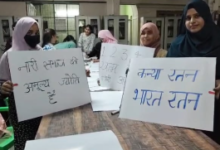 नारी समाज की
अमूल्य ज्योति
है
कन्या रतन
भारत रतन